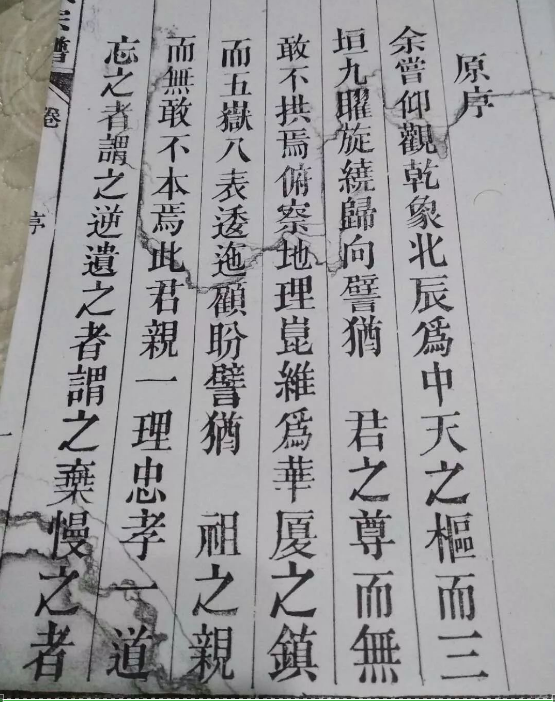 原序
余嘗仰觀乾象北辰爲中天之樞而三
垣九曜旋繞歸向譬猶 君之尊而無
敢不拱焉俯察地理崑維爲華厦之鎮
而五嶽八表逶迤顧盼譬猶 祖之親
而無敢不本焉此君親一理忠孝一道
忘之者謂之逆遺之者謂之棄慢之者
宗譜 卷 序